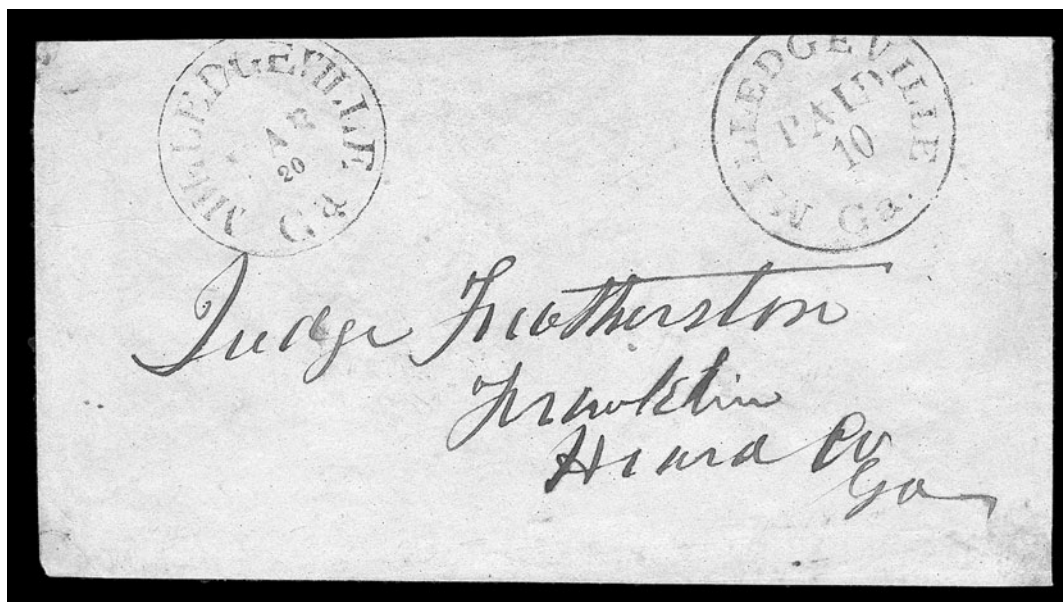 MILLEDGEVILLE
AP
20
Ga
MILLEDGEVILLE
PAID
10
Ga.
Judge Featherston
Franklin
Heard Co
Ga